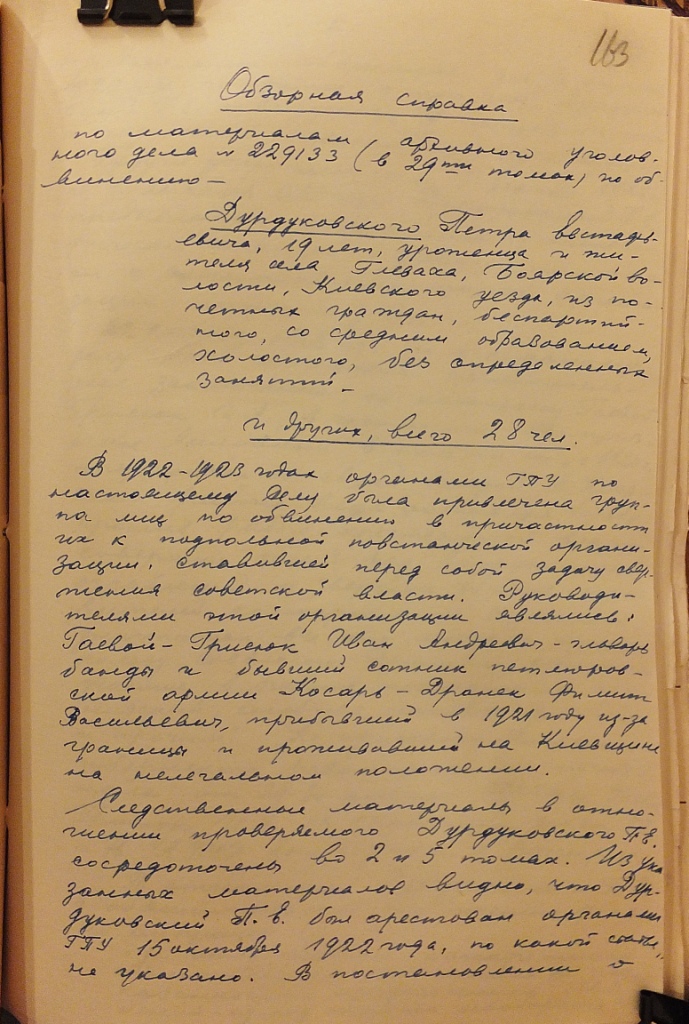 163
Обзорная справка
по материалам архивного уголов-
ного дела № 229133 (в 29ти томах) по об-
винению –
Дурдуковского Петра Евстафь-
евича, 19 лет, уроженца и жи-
теля села Глеваха, Боярской во-
лости, Киевского уезда, из по-
четных граждан, беспартий-
ного, со средним образованием,
холостого, без определенных
занятий –
и других, всего 28 чел.
В 1922-1923 годах органами ГПУ по
настоящему делу была привлечена груп-
па лиц по обвинению в причастности
их к подпольной повстанческой органи-
зации, ставившей перед собой задачу свер-
жения советской власти. Руководи-
телями этой организации являлись:
Гаевой-Грисюк Иван Андреевич – главарь
банды и бывший сотник петлюров-
ской армии Косарь – Филипп
Васильевич, прибывший в 1921 году из-за
границы и проживавший на Киевщине
на нелегальном положении.
Следственные материалы в отно-
шении проверяемого Дурдуковского П.Е.
сосредоточены во 2 и 5 томах. Из ука
занных материалов видно, что Дур-
дуковский П.Е. был арестован органами
ГПУ 15 октября 1922 года, по какой статье,
не указано. В постановлении о